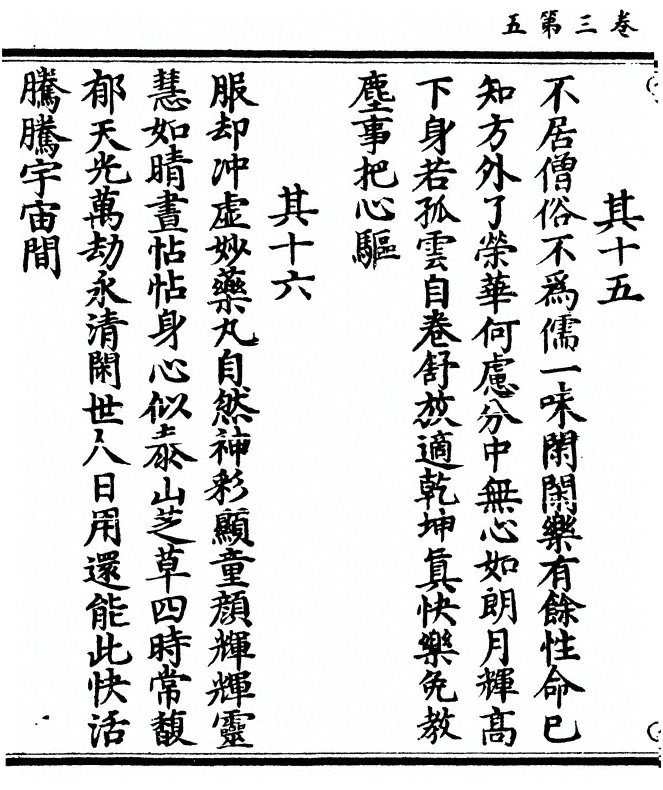 卷三第五
其十五
不居僧俗不為儒一味閑閑樂有餘性命已
知方外了榮華何慮分中無心如朗月輝高
下身若孤雲自卷舒放適乾坤真快樂免教
塵事把心驅
其十六
服却冲虛妙藥丸自然神彩顯童顏輝輝靈
慧如晴晝帖帖身心似泰山芝草四時常馥
郁天光萬劫永清閑世人日用還能此快活
騰騰宇宙間